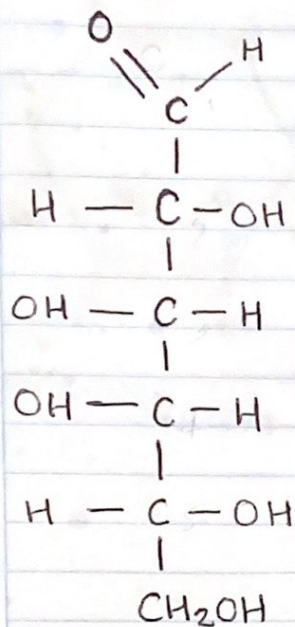 O
H
C
H — C — OH
OH — C — H
OH — C — H
H — C — OH
CH₂OH